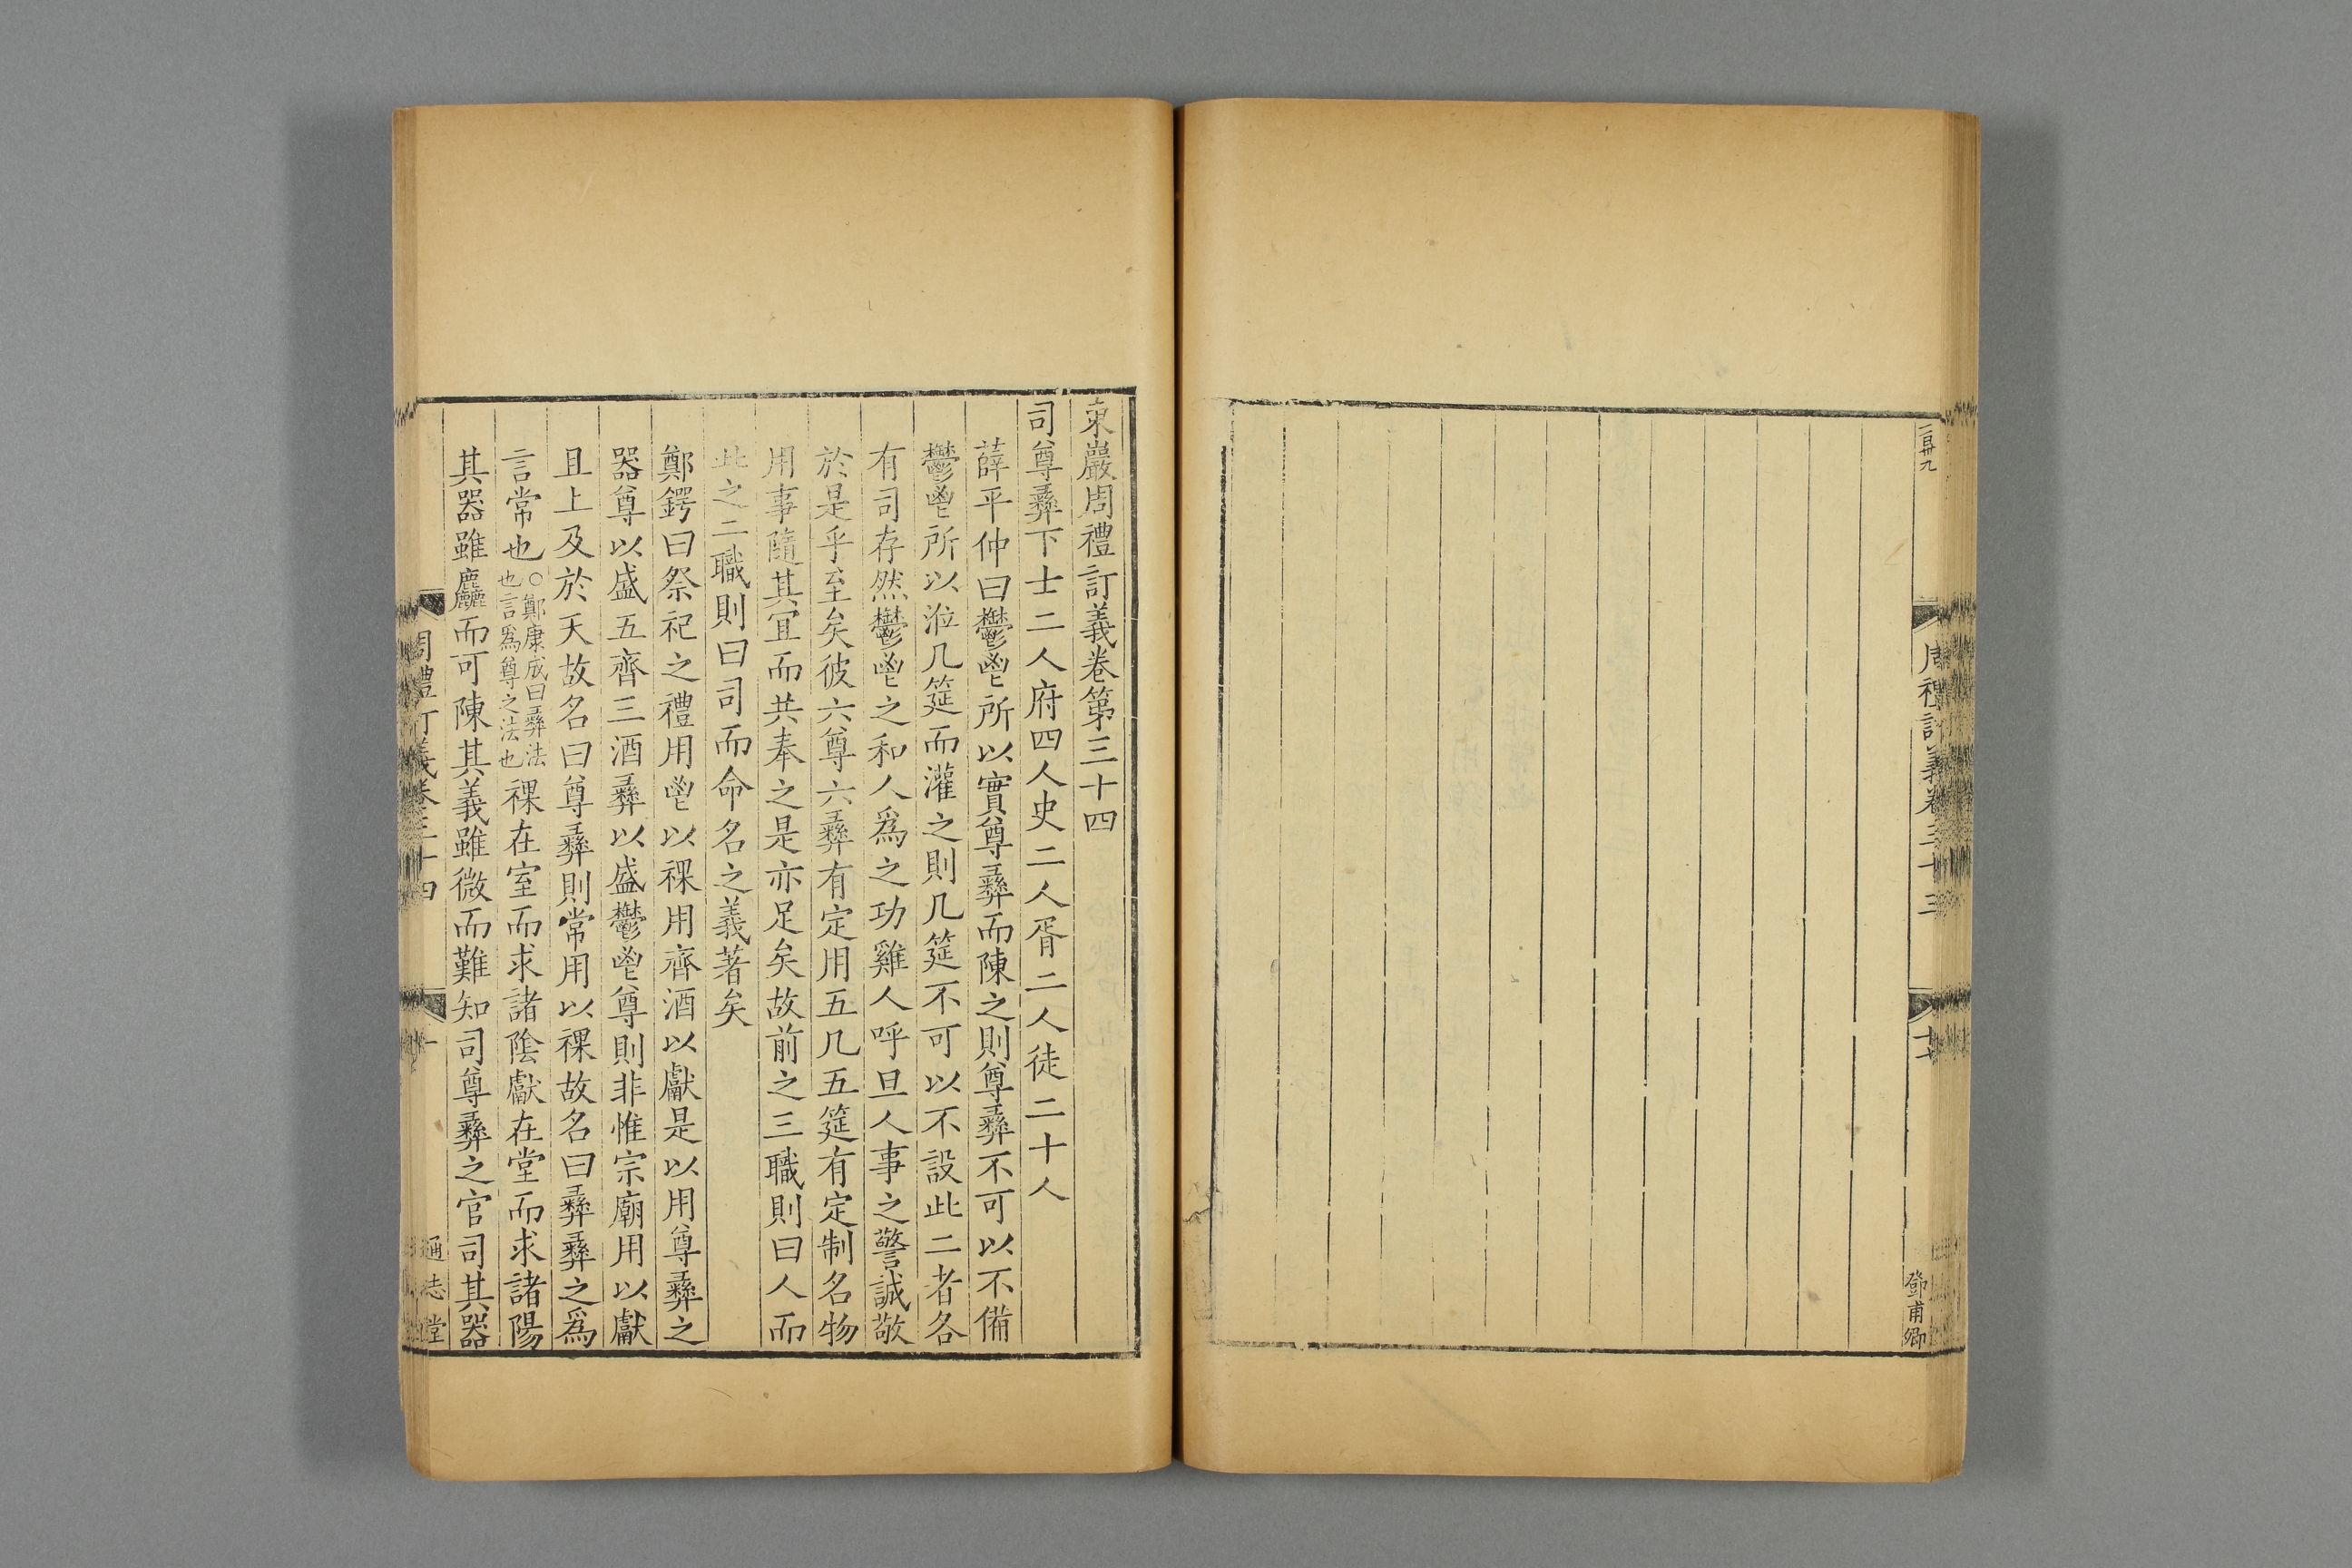 周禮訂義卷三十三
十七
鄧甫卿
東巖周禮訂義卷第三十四
司尊彝下士二人府四人史二人胥二人徒二十人
薛平仲曰鬱鬯所以實尊彝而陳之則尊彝不可以不備
鬱鬯所以涖几筵而灌之則几筵不可以不設此二者各
有司存然鬱鬯之和人爲之功雞人呼旦人事之警誠敬
於是乎至矣彼六尊六彝有定用五几五筵有定制名物
用事隨其宜而共奉之是亦足矣故前之三職則曰人而
此之二職則曰司而命名之義著矣
鄭鍔曰祭祀之禮用鬯以祼用齊酒以獻是以用尊彝之
器尊以盛五齊三酒彝以盛鬱鬯尊則非惟宗廟用以獻
且上及於天故名曰尊彝則常用以祼故名曰彝彝之爲
言常也○鄭康成曰彝法也言爲尊之法也祼在室而求諸陰獻在堂而求諸陽
其器雖麤而可陳其義雖微而難知司尊彝之官司其器
周禮訂義卷三十四
一
通志堂